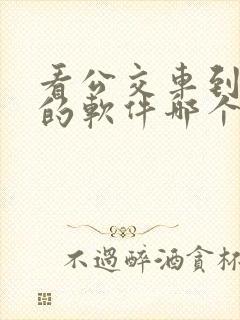 看公交車到
的軟件那个
不過醉酒貪杯